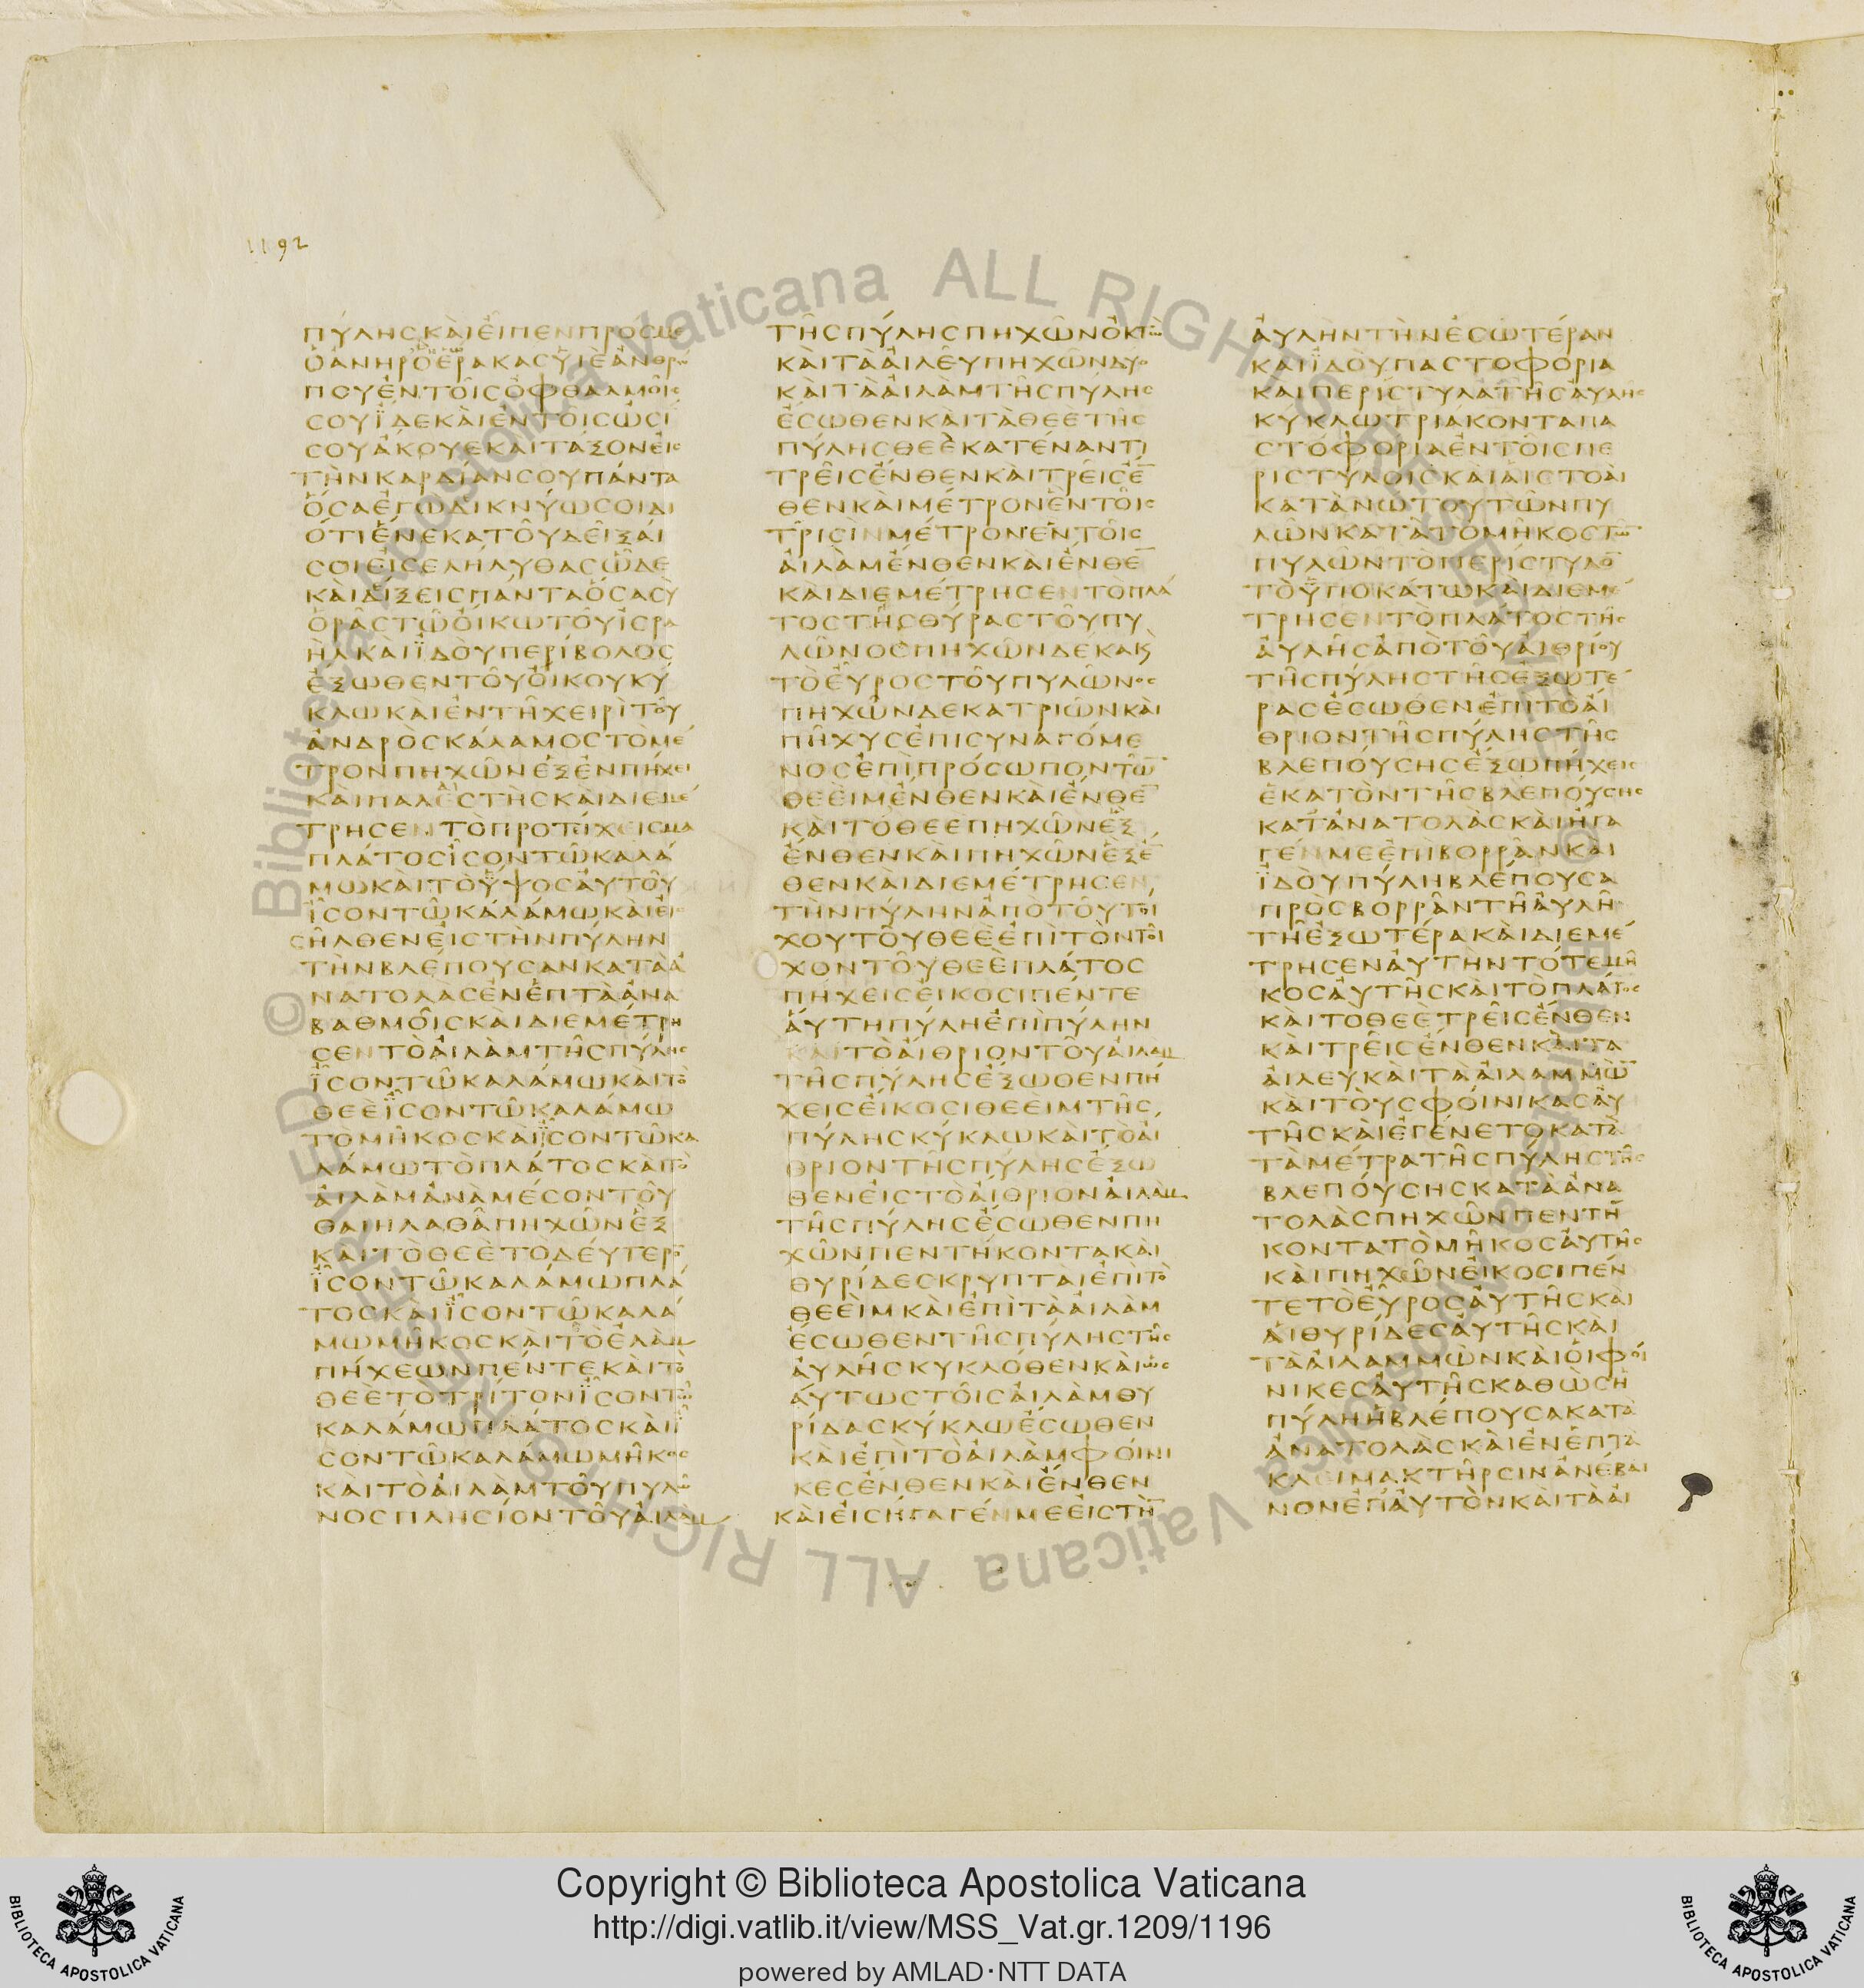 1192
ΠΥΛΗСΚΑΙΕΙΠΕΝΠΡΟСΜΕ
ΟΑΝΗΡΟΕΡΑΚΑСΥΙΕΑΝΘΡΩ
ΠΟΥΕΝΤΟΙСΟΦΘΑΛΜΟΙС
СΟΥΙΔΕΚΑΙΕΝΤΟΙСΩСΙ
СΟΥΑΚΟΥΕΚΑΙΤΑΞΟΝΕΙС
ΤΗΝΚΑΡΔΙΑΝСΟΥΠΑΝΤΑ
ΟСΑΕΓΩΔΙΚΝΥΩСΟΙΔΙ
ΟΤΙΕΝΕΚΑΤΟΥΔΕΙΞΑΙ
СΟΙΕΙСΕΛΗΛΥΘΑСΩΔΕ
ΚΑΙΔΙΞΕΙСΠΑΝΤΑΟСΑСΥ
ΟΡΑСΤΩΟΙΚΩΤΟΥΙСΡΑ
ΗΛΚΑΙΙΔΟΥΠΕΡΙΒΟΛΟС
ΕΞΩΘΕΝΤΟΥΟΙΚΟΥΚΥ
ΚΛΩΚΑΙΕΝΤΗΧΕΙΡΙΤΟΥ
ΑΝΔΡΟСΚΑΛΑΜΟСΤΟΜΕ
ΤΡΟΝΠΗΧΩΝΕΞΕΝΠΗΧΕΙ
ΚΑΙΠΑΛΕСΤΗСΚΑΙΔΙΕΜΕ
ΤΡΗСΕΝΤΟΠΡΟΤΙΧΕΙСΜΑ
ΠΛΑΤΟСΙСΟΝΤΩΚΑΛΑ
ΜΩΚΑΙΤΟΥΨΟСΑΥΤΟΥ
ΙСΟΝΤΩΚΑΛΑΜΩΚΑΙΕΙ
СΗΛΘΕΝΕΙСΤΗΝΠΥΛΗΝ
ΤΗΝΒΛΕΠΟΥСΑΝΚΑΤΑΑ
ΝΑΤΟΛΑСΕΝΕΠΤΑΑΝΑ
ΒΑΘΜΟΙСΚΑΙΔΙΕΜΕΤΡΗ
СΕΝΤΟΑΙΛΑΜΤΗСΠΥΛΗС
ΙСΟΝΤΩΚΑΛΑΜΩΚΑΙΤΟ
ΘΕΕΙСΟΝΤΩΚΑΛΑΜΩ
ΤΟΜΗΚΟСΚΑΙΙСΟΝΤΩΚΑ
ΛΑΜΩΤΟΠΛΑΤΟСΚΑΙΤΟ
ΑΙΛΑΜΑΝΑΜΕСΟΝΤΟΥ
ΘΑΙΗΛΑΘΑΠΗΧΩΝΕΞ
ΚΑΙΤΟΘΕΕΤΟΔΕΥΤΕΡΟ̅
ΙСΟΝΤΩΚΑΛΑΜΩΠΛΑ
ΤΟСΚΑΙΙСΟΝΤΩΚΑΛΑ
ΜΩΜΗΚΟСΚΑΙΤΟΕΛΑΜ
ΠΗΧΕΩΝΠΕΝΤΕΚΑΙΤΟ
ΘΕΕΤΟΤΡΙΤΟΝΙСΟΝΤΩ
ΚΑΛΑΜΩΠΛΑΤΟСΚΑΙΙ
СΟΝΤΩΚΑΛΑΜΩΜΗΚΟС
ΚΑΙΤΟΑΙΛΑΜΤΟΥΠΥΛΩ
ΝΟСΠΛΗСΙΟΝΤΟΥΑΙΛΑΜ
ΤΗСΠΥΛΗСΠΗΧΩΝΟΚΤΩ
ΚΑΙΤΑΑΙΛΕΥΠΗΧΩΝΔΥΟ
ΚΑΙΤΑΑΙΛΑΜΤΗСΠΥΛΗС
ΕСΩΘΕΝΚΑΙΤΑΘΕΕΤΗС
ΠΥΛΗСΘΕΕΚΑΤΕΝΑΝΤΙ
ΤΡΕΙСΕΝΘΕΝΚΑΙΤΡΕΙСΕ̅
ΘΕΝΚΑΙΜΕΤΡΟΝΕΝΤΟΙС
ΤΡΙСΙΝΜΕΤΡΟΝΕΝΤΟΙС
ΑΙΛΑΜΕΝΘΕΝΚΑΙΕΝΘΕ̅
ΚΑΙΔΙΕΜΕΤΡΗСΕΝΤΟΠΛΑ
ΤΟСΤΗСΘΥΡΑСΤΟΥΠΥ
ΛΩΝΟСΠΗΧΩΝΔΕΚΑΚϗ
ΤΟΕΥΡΟСΤΟΥΠΥΛΩΝΟС
ΠΗΧΩΝΔΕΚΑΤΡΙΩΝΚΑΙ
ΠΗΧΥСΕΠΙСΥΝΑΓΟΜΕ
ΝΟСΕΠΙΠΡΟСΩΠΟΝΤΩ̅
ΘΕΕΙΜΕΝΘΕΝΚΑΙΕΝΘΕ̅
ΚΑΙΤΟΘΕΕΠΗΧΩΝΕΞ
ΕΝΘΕΝΚΑΙΠΗΧΩΝΕΞΕ̅
ΘΕΝΚΑΙΔΙΕΜΕΤΡΗСΕΝ
ΤΗΝΠΥΛΗΝΑΠΟΤΟΥΤΟΙ
ΧΟΥΤΟΥΘΕΕΕΠΙΤΟΝΤΟΙ
ΧΟΝΤΟΥΘΕΕΠΛΑΤΟС
ΠΗΧΕΙСΕΙΚΟСΙΠΕΝΤΕ
ΑΥΤΗΠΥΛΗΕΠΙΠΥΛΗΝ
ΚΑΙΤΟΑΙΘΡΙΟΝΤΟΥΑΙΛΑΜ
ΤΗСΠΥΛΗСΕΞΩΘΕΝΠΗ
ΧΕΙСΕΙΚΟСΙΘΕΕΙΜΤΗС
ΠΥΛΗСΚΥΚΛΩΚΑΙΤΟΑΙ
ΘΡΙΟΝΤΗСΠΥΛΗСΕΞΩ
ΘΕΝΕΙСΤΟΑΙΘΡΙΟΝΑΙΛΑΜ
ΤΗСΠΥΛΗСΕСΩΘΕΝΠΗ
ΧΩΝΠΕΝΤΗΚΟΝΤΑΚΑΙ
ΘΥΡΙΔΕСΚΡΥΠΤΑΙΕΠΙΤΟ
ΘΕΕΙΜΚΑΙΕΠΙΤΑΑΙΛΑΜ
ΕСΩΘΕΝΤΗСΠΥΛΗСΤΗС
ΑΥΛΗСΚΥΚΛΟΘΕΝΚΑΙΩС
ΑΥΤΩСΤΟΙСΑΙΛΑΜΘΥ
ΡΙΔΑСΚΥΚΛΩΕСΩΘΕΝ
ΚΑΙΕΠΙΤΟΑΙΛΑΜΦΟΙΝΙ
ΚΕСΕΝΘΕΝΚΑΙΕΝΘΕΝ
ΚΑΙΕΙСΗΓΑΓΕΝΜΕΕΙСΤΗ̅
ΑΥΛΗΝΤΗΝΕСΩΤΕΡΑΝ
ΚΑΙΙΔΟΥΠΑСΤΟΦΟΡΙΑ
ΚΑΙΠΕΡΙСΤΥΛΑΤΗСΑΥΛΗС
ΚΥΚΛΩΤΡΙΑΚΟΝΤΑΠΑ
СΤΟΦΟΡΙΑΕΝΤΟΙСΠΕ
ΡΙСΤΥΛΟΙСΚΑΙΑΙСΤΟΑΙ
ΚΑΤΑΝΩΤΟΥΤΩΝΠΥ
ΛΩΝΚΑΤΑΤΟΜΗΚΟСΤΩ̅
ΠΥΛΩΝΤΟΠΕΡΙСΤΥΛΟ̅
ΤΟΥΠΟΚΑΤΩΚΑΙΔΙΕΜΕ
ΤΡΗСΕΝΤΟΠΛΑΤΟСΤΗС
ΑΥΛΗСΑΠΟΤΟΥΑΙΘΡΙΟΥ
ΤΗСΠΥΛΗСΤΗСΕΞΩΤΕ
ΡΑСΕСΩΘΕΝΕΠΙΤΟΑΙ
ΘΡΙΟΝΤΗСΠΥΛΗСΤΗС
ΒΛΕΠΟΥСΗСΕΞΩΠΗΧΕΙС
ΕΚΑΤΟΝΤΗСΒΛΕΠΟΥСΗС
ΚΑΤΑΝΑΤΟΛΑСΚΑΙΗΓΑ
ΓΕΝΜΕΕΠΙΒΟΡΡΑΝΚΑΙ
ΙΔΟΥΠΥΛΗΒΛΕΠΟΥСΑ
ΠΡΟСΒΟΡΡΑΝΤΗΑΥΛΗ
ΤΗΕΞΩΤΕΡΑΚΑΙΔΙΕΜΕ
ΤΡΗСΕΝΑΥΤΗΝΤΟΤΕΜΗ
ΚΟСΑΥΤΗСΚΑΙΤΟΠΛΑΤΟС
ΚΑΙΤΟΘΕΕΤΡΕΙСΕΝΘΕΝ
ΚΑΙΤΡΕΙСΕΝΘΕΝΚΑΙΤΑ
ΑΙΛΕΥΚΑΙΤΑΑΙΛΑΜΜΩ̅
ΚΑΙΤΟΥСΦΟΙΝΙΚΑСΑΥ
ΤΗСΚΑΙΕΓΕΝΕΤΟΚΑΤΑ
ΤΑΜΕΤΡΑΤΗСΠΥΛΗСΤΗС
ΒΛΕΠΟΥСΗСΚΑΤΑΑΝΑ
ΤΟΛΑСΠΗΧΩΝΠΕΝΤΗ
ΚΟΝΤΑΤΟΜΗΚΟСΑΥΤΗС
ΚΑΙΠΗΧΩΝΕΙΚΟСΙΠΕΝ
ΤΕΤΟΕΥΡΟСΑΥΤΗСΚΑΙ
ΑΙΘΥΡΙΔΕСΑΥΤΗСΚΑΙ
ΤΑΑΙΛΑΜΜΩΝΚΑΙΟΙΦΟΙ
ΝΙΚΕСΑΥΤΗСΚΑΘΩСΗ
ΠΥΛΗΗΒΛΕΠΟΥСΑΚΑΤΑ
ΑΝΑΤΟΛΑСΚΑΙΕΝΕΠΤΑ
ΚΛΕΙΜΑΚΤΗΡСΙΝΑΝΕΒΑΙ
ΝΟΝΕΠΑΥΤΟΝΚΑΙΤΑΑΙ
© Biblioteca Apostolica Vaticana ALL RIGHTS RESERVED
© Biblioteca Apostolica Vaticana ALL RIGHTS RESERVED
BIBLIOTECA APOSTOLICA VATICANA
Copyright © Biblioteca Apostolica Vaticana
http://digi.vatlib.it/view/MSS_Vat.gr.1209/1196
powered by AMLAD·NTT DATA
BIBLIOTECA APOSTOLICA VATICANA